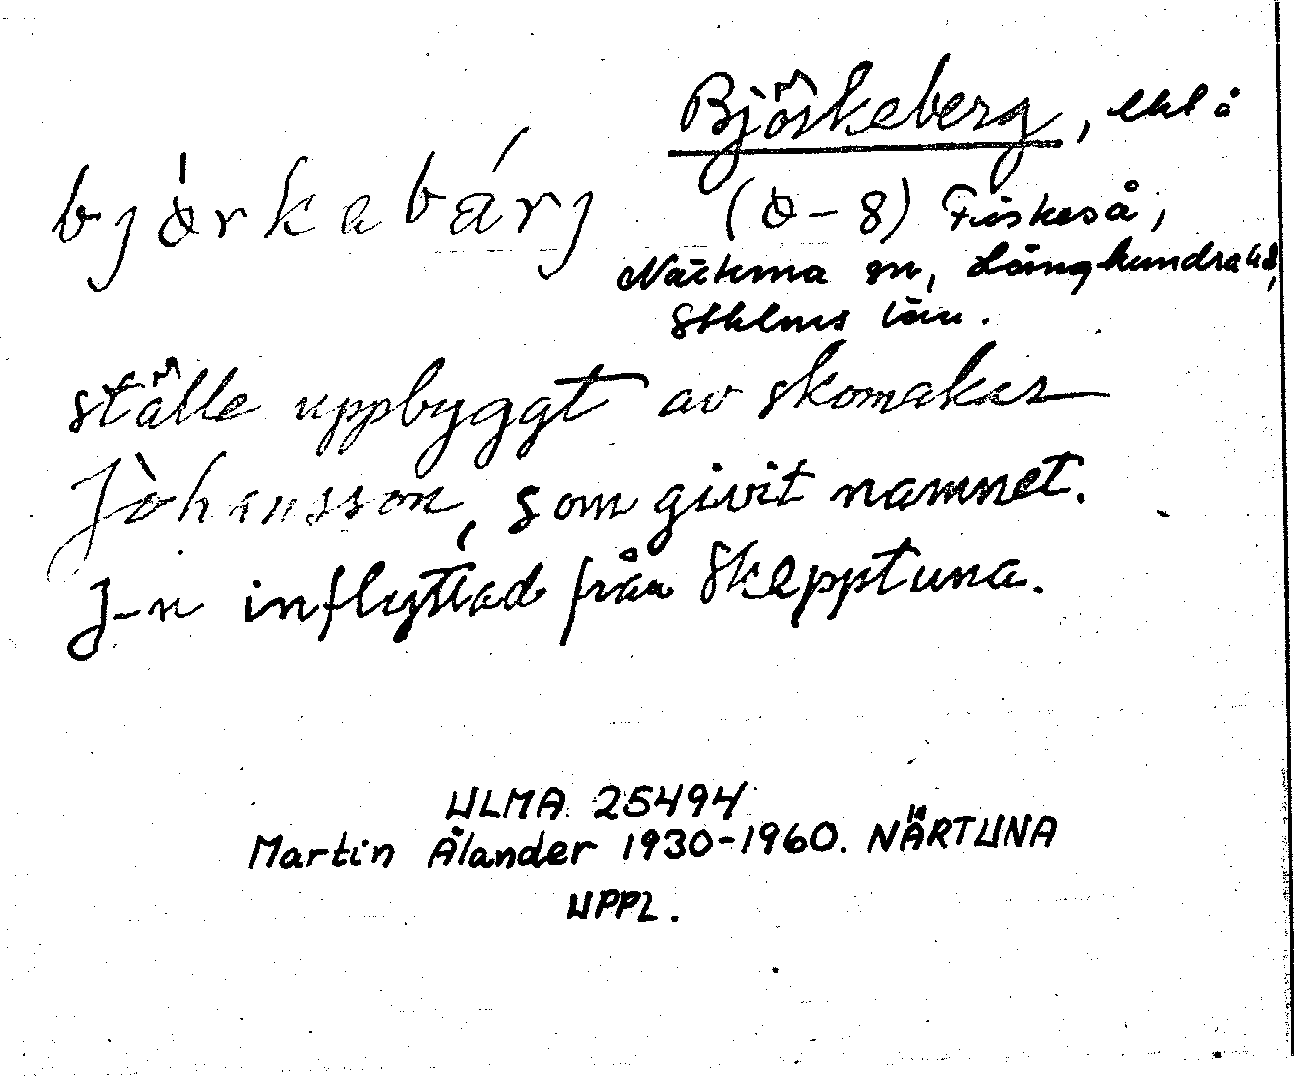 Björkeberg, ekl å
björkabärj
(Ö-8) Fiskeså,
Närtuna sn, Långhundra hd,
Sthlms län.
ställe uppbyggt av skomakar
Johansson, som givit namnet.
J-n inflyttad från Skepptuna.
ULMA 25494
Martin Ålander 1930-1960. NÄRTUNA
UPPL.